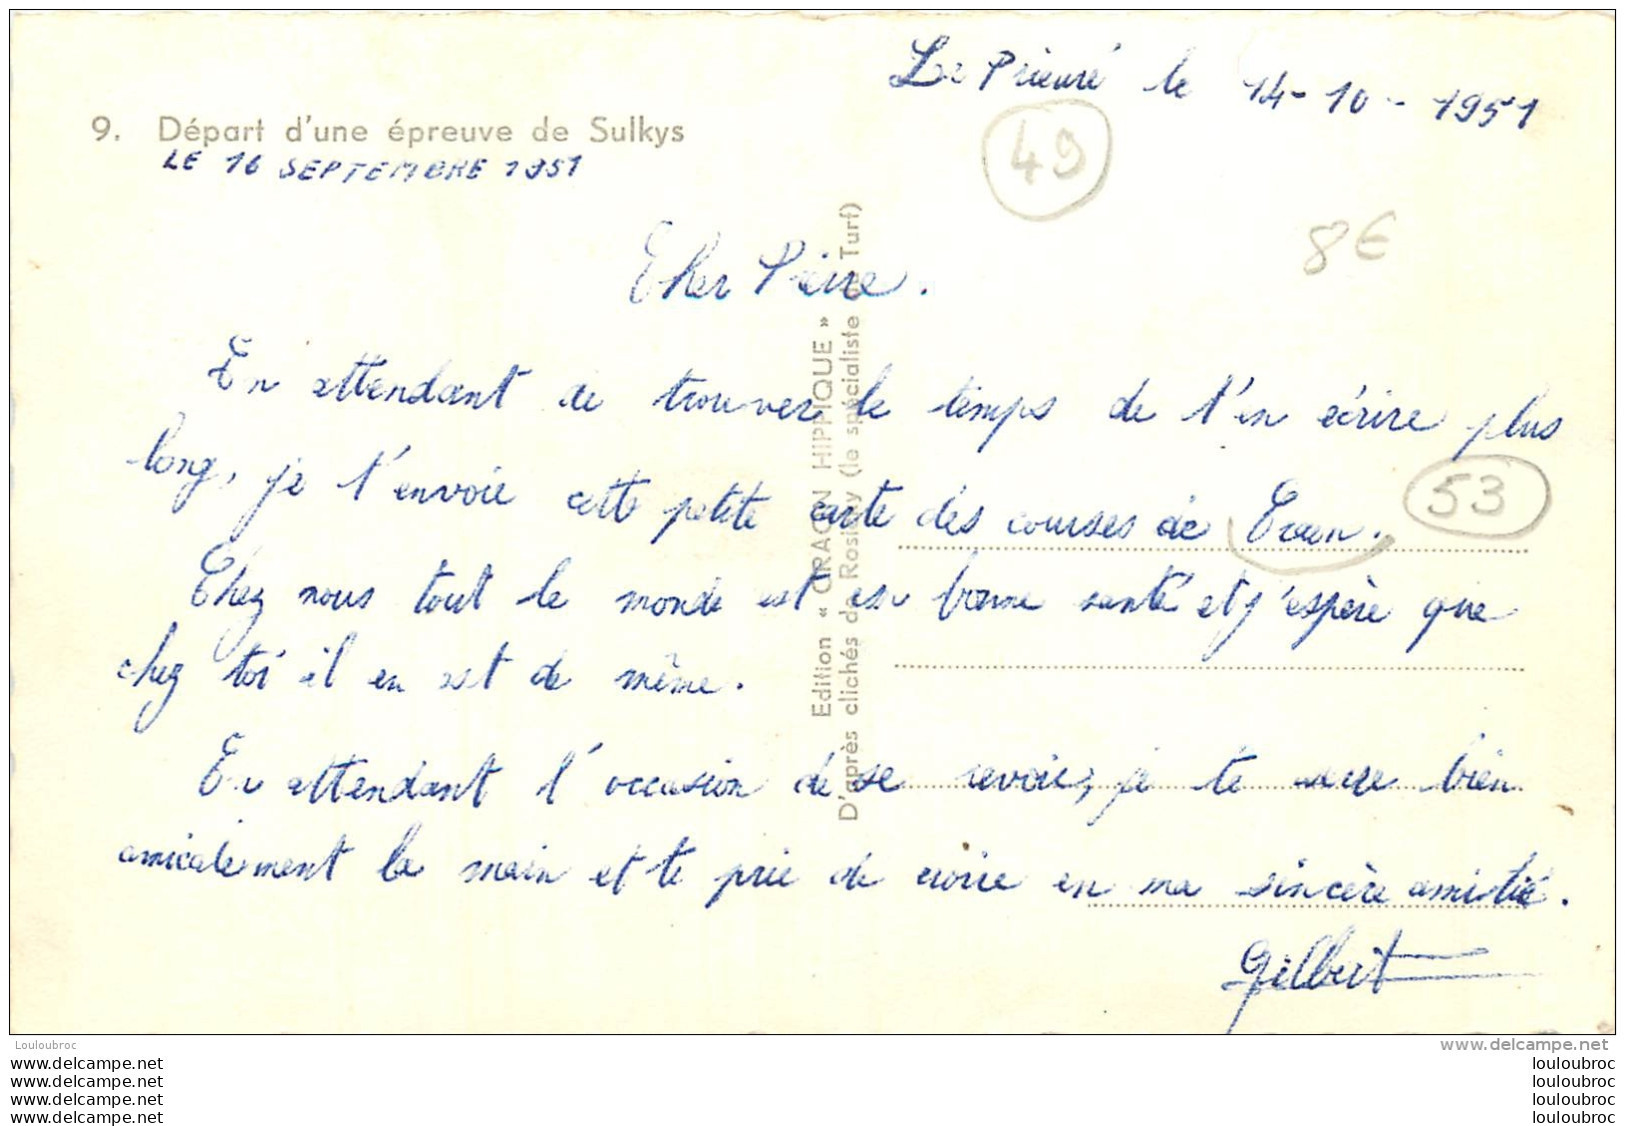 Le Prieuré le 14-10-1951
9. Départ d'une épreuve de Sulkys
LE 16 SEPTEMBRE 1951
49
8€
Cher Pierre.
En attendant de trouver le temps de t'en écrire plus
long, je t'envoie cette petite carte des courses de Craon.
53
Chez nous tout le monde est en bonne santé et j'espère que
chez toi il en est de même.
En attendant l'occasion de se revoir, je te serre bien
amicalement la main et te prie de croire en ma sincère amitié.
Gilbert
Edition « CRAON HIPPIQUE »
D'après clichés de Rosiny (le spécialiste du Turf)
Louloubroc
www.delcampe.net
www.delcampe.net louloubroc
www.delcampe.net louloubroc
www.delcampe.net louloubroc
www.delcampe.net louloubroc